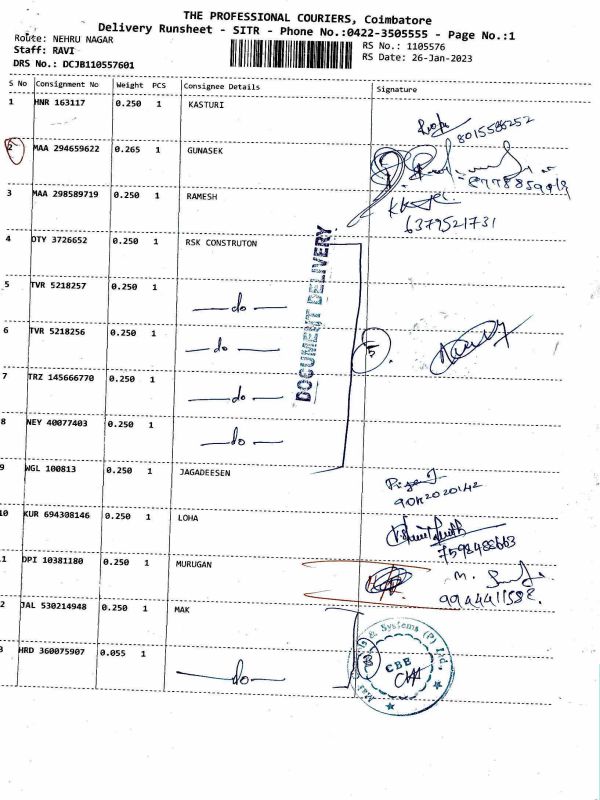 THE PROFESSIONAL COURIERS, Coimbatore
Delivery Runsheet - SITR - Phone No.:0422-3505555 - Page No.:1
Route: NEHRU NAGAR
RS No.: 1105576
Staff: RAVI
RS Date: 26-Jan-2023
DRS No.: DCJB110557601
S No Consignment No Weight PCS Consignee Details Signature
1 HNR 163117 0.250 1 KASTURI
8015585252
2 MAA 294659622 0.265 1 GUNASEK
3 MAA 298589719 0.250 1 RAMESH
6379521731
4 DTY 3726652 0.250 1 RSK CONSTRUTON
DOCUMENT DELIVERY
5 TVR 5218257 0.250 1 — do —
6 TVR 5218256 0.250 1 — do — 5
7 TRZ 145666770 0.250 1 — do —
8 NEY 40077403 0.250 1 — do —
9 WGL 100813 0.250 1 JAGADEESEN
10 KUR 694308146 0.250 1 LOHA
7598488663
1 DPI 10381180 0.250 1 MURUGAN
M.
9944411588.
2 JAL 530214948 0.250 1 MAK
& Systems (P) Ltd.,
3 HRD 360075907 0.055 1 — do —
CBE